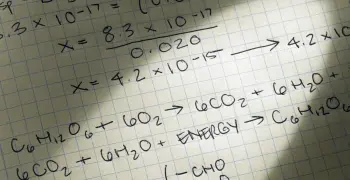 sp
.3 × 10⁻¹⁷ = (0.0
x = 8.3 × 10⁻¹⁷
0.020
x = 4.2 × 10⁻¹⁵ → 4.2 × 10
C₆H₁₂O₆ + 6O₂ → 6CO₂ + 6H₂O +
6CO₂ + 6H₂O + ENERGY → C₆H₁₂O₆
CHO